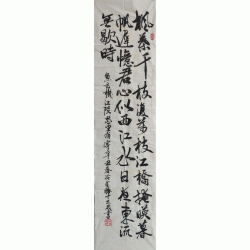 楓葉千枝復萬枝江橋掩映暮
帆遲憶君心似西江水日夜東流
無歇時
魚玄機江陵愁望有寄辛丑春